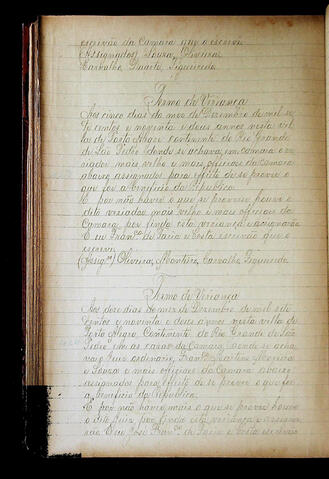 escrivão da Camara que o escrevi
(Assignados) Souza, Oliveira,
Carvalho, Duarte, Figueiredo
Termo de Veriança
Aos cinco dias do mes de Dezembro de mil se
te centos e noventa e deus annos nesta vil
la de Porto Alegre continente do Rio Grande
de São Pedro donde se achava em camara o ve
riador mais velho e mais officiaes da camara
abaixo assignados para effeito de se prover o
que for a beneficio da Republica.
E por não haver o que se prover houve o
dito veriador mais velho e mais officiaes da
Camara por finda esta veriança e assignarão
E eu Franco. de Faria e Costa escrivão que o
escrevi
(Assigos.) Oliveira, Monteiro, Carvalho, Figueiredo
Termo de Veriança
Aos doze dias do mez de Dezembro de mil sete
centos e noventa e deus annos nesta villa de
Porto Alegre, Continente do Rio Grande de São
Pedro em as casas da Camara donde se acha
vao o Juiz ordenario, Franco. Martins
e Souza e mais officiaes da Camara abaixo
assignados para effeito de se prover o que fora
a beneficio da Republica.
E por não haver mais o que se prover houve
o dito Juiz por finda esta veriança e assigna
rão E eu José Franco. de Faria e Costa escrivão